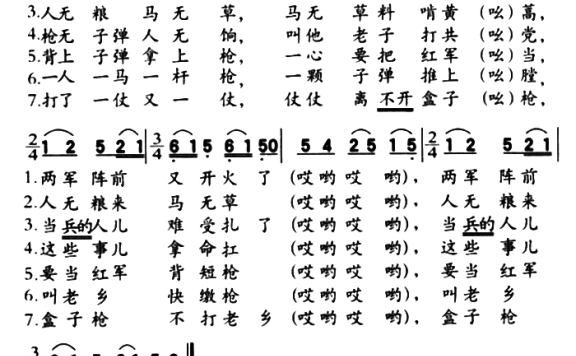 3.人无 粮 马无 草， 马无 草料 啃黄(吆)蒿，
4.枪无 子弹 人无 饷， 叫他 老子 打共(吆)党，
5.背上 子弹 拿上 枪， 一心 要把 红军(吆)当，
6.一人 一马 一杆 枪， 一颗 子弹 推上(吆)膛，
7.打了 一仗 又一 仗， 仗仗 离 不开 盒子(吆)枪，
2/4 1 2 5 2 1 | 3/4 6 1 5 6 1 5 0 | 5 4 2 5 1 5 | 2/4 1 2 5 2 1 |
1.两军 阵前 又开火 了 (哎 哟 哎 哟)， 两军 阵前
2.人无 粮来 马无草 (哎 哟 哎 哟)， 人无 粮来
3.当 兵的 人儿 难受扎 了 (哎 哟 哎 哟)， 当 兵的 人儿
4.这些 事儿 拿命扛 (哎 哟 哎 哟)， 这些 事儿
5.要当 红军 背短枪 (哎 哟 哎 哟)， 要当 红军
6.叫老 乡 快缴枪 (哎 哟 哎 哟)， 叫老 乡
7.盒子 枪 不打老 乡 (哎 哟 哎 哟)， 盒子 枪